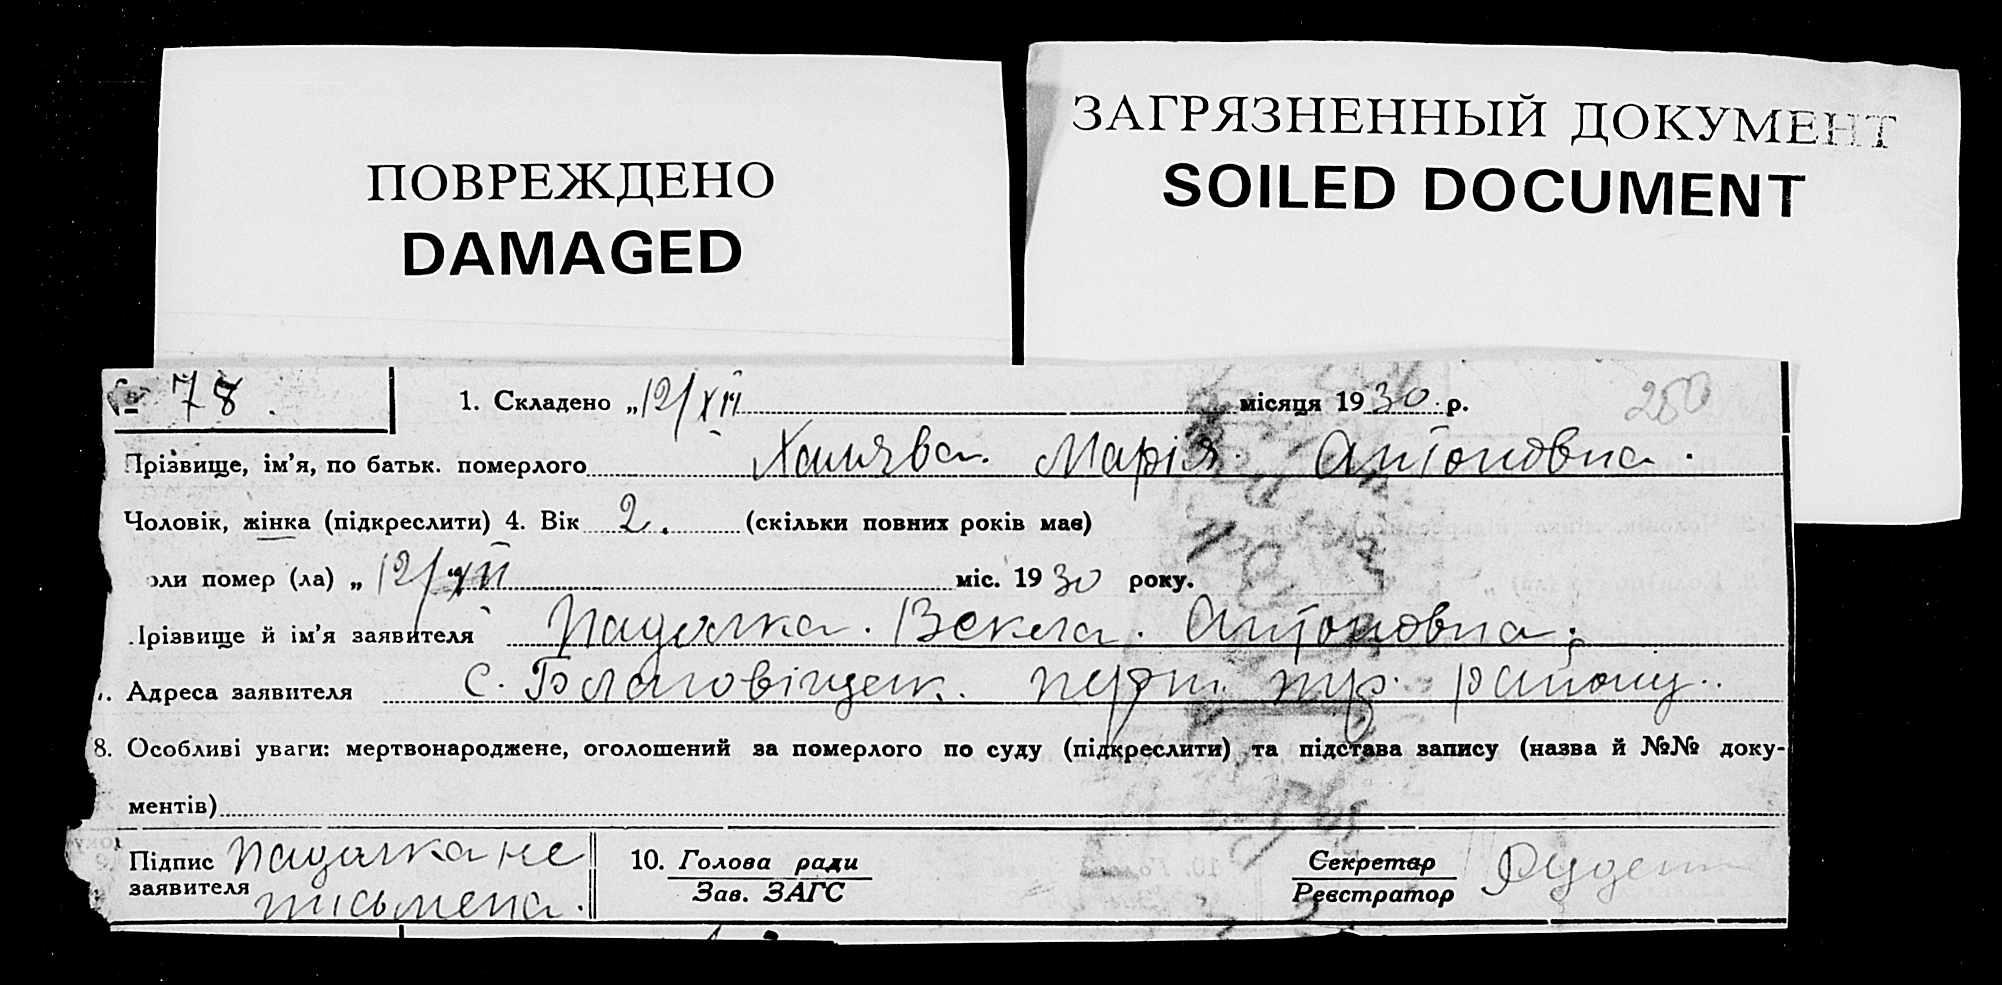 ПОВРЕЖДЕНО
DAMAGED
ЗАГРЯЗНЕННЫЙ ДОКУМЕНТ
SOILED DOCUMENT
№ 78.
1. Складено „12/XII місяця 1930 р.
250
Прізвище, ім’я, по батьк. померлого Халява Марія Антоновна.
Чоловік, жінка (підкреслити) 4. Вік 2. (скільки повних років має)
оли помер (ла) „ 12/XII міс. 1930 року.
Прізвище й ім’я заявителя Падалка. Векла. Антоновна.
Адреса заявителя с. Благовіщен. перш. району.
8. Особливі уваги: мертвонароджене, оголошений за померлого по суду (підкреслити) та підстава запису (назва й №№ доку-
ментів)
Підпис заявителя Падалка не письмена.
10. Голова ради
Зав. ЗАГС
Секретар
Реєстратор